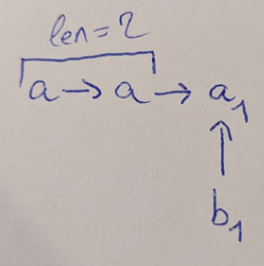 len=2
a → a → a₁
↑
b₁